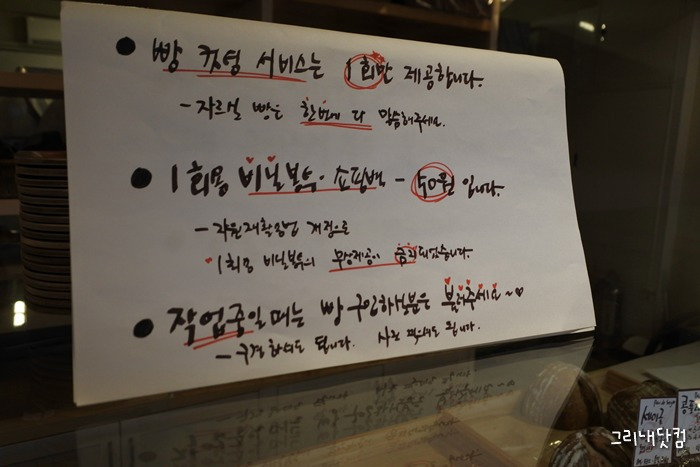 ● 빵 컷팅 서비스는 1회만 제공합니다.
- 자르실 빵은 한번에 다 말씀해주세요.
● 1회용 비닐봉투·쇼핑백 - 50원 입니다.
- 자원재활용법 개정으로
1회용 비닐봉투의 무상제공이 금지되었습니다.
● 작업중일때는 빵 구입하실분은 불러주세요~♡
- 구경하셔도 됩니다. 사진 찍으셔도 됩니다.
그리내닷컴